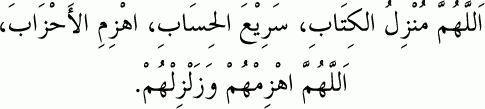 اَللَّهُمَّ مُنْزِلَ الكِتَابِ، سَرِيْعَ الحِسَابِ، اهْزِمِ الأَحْزَابَ،
اَللَّهُمَّ اهْزِمْهُمْ وَزَلْزِلْهُمْ.